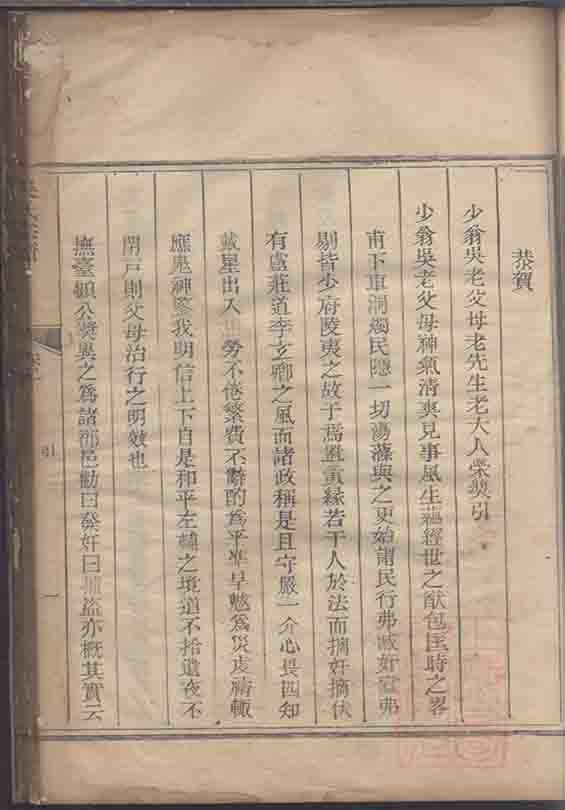 恭賀
少翁吳老父母老先生老大人榮奬引
少翁吳老父母神氣清爽見事風生蘊經世之猷包匡時之畧
甫下車洞燭民隱一切蕩滌與之更始謂民行弗臧奸宄弗
剔皆少府陵夷之故于焉置重緣若干人於法而摘奸摘伏
有盧莊道李立卿之風而諸政稱是且守嚴一介心畏四知
戴星出入 勞不倦繁費不辭酌為平準旱魃為災虔禱輒
應鬼神鑒我明信上下自是和平左輔之境道不拾遺夜不
閉戸則父母治行之明效也
撫臺頓公奬異之為諸郡邑勸曰發奸曰捕盗亦概其實云
引
一